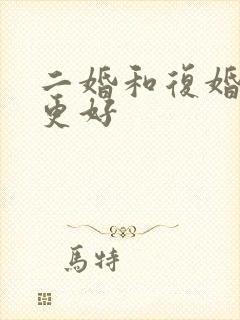 二婚和復婚
更好
馬特